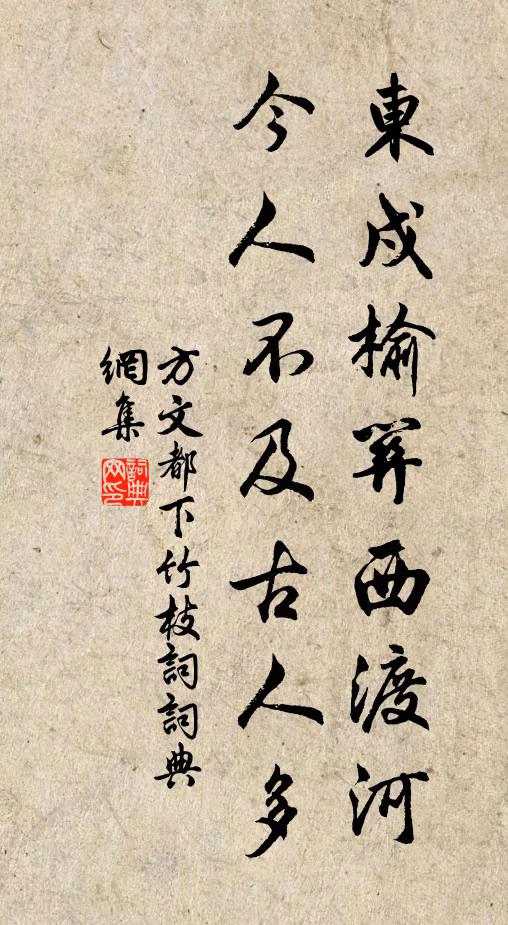 東戍榆關西渡河
今人不及古人多
方文都下竹枝詞詞典
網集
詞典
网印